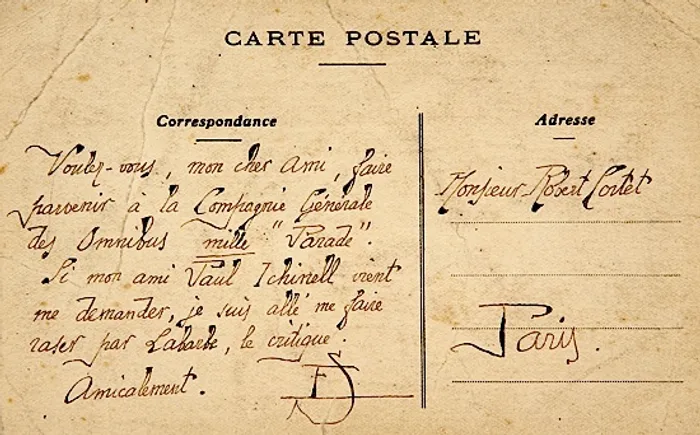 CARTE POSTALE
Correspondance
Voulez-vous, mon cher ami, faire
parvenir à la Compagnie Générale
des Omnibus mille "Parade".
Si mon ami Paul Ichinell vient
me demander, je suis allé me faire
raser par Labarbe, le critique.
Amicalement.
Adresse
Monsieur Robert Cortet
Paris.